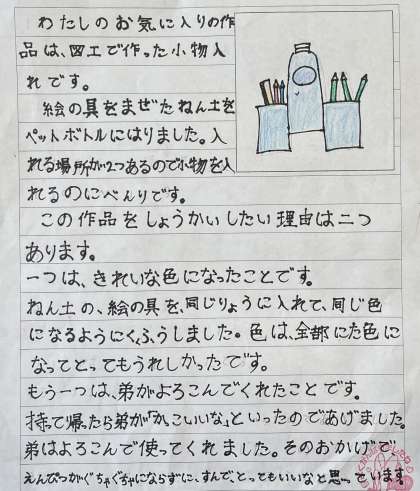 わたしのお気に入りの作
品は、図工で作った小物入
れです。
絵の具をまぜたねん土を
ペットボトルにはりました。入
れる場所が2つあるので小物を入
れるのにべんりです。
この作品をしょうかいしたい理由は二つ
あります。
一つは、きれいな色になったことです。
ねん土の、絵の具を、同じりょうに入れて、同じ色
になるようにくふうしました。色は、全部にた色に
なってとってもうれしかったです。
もう一つは、弟がよろこんでくれたことです。
持って帰ったら弟が「かっこいいな」といったのであげました。
弟はよろこんで使ってくれました。そのおかげで、
えんぴつがぐちゃぐちゃにならずに、すんで、とってもいいなと思っています。